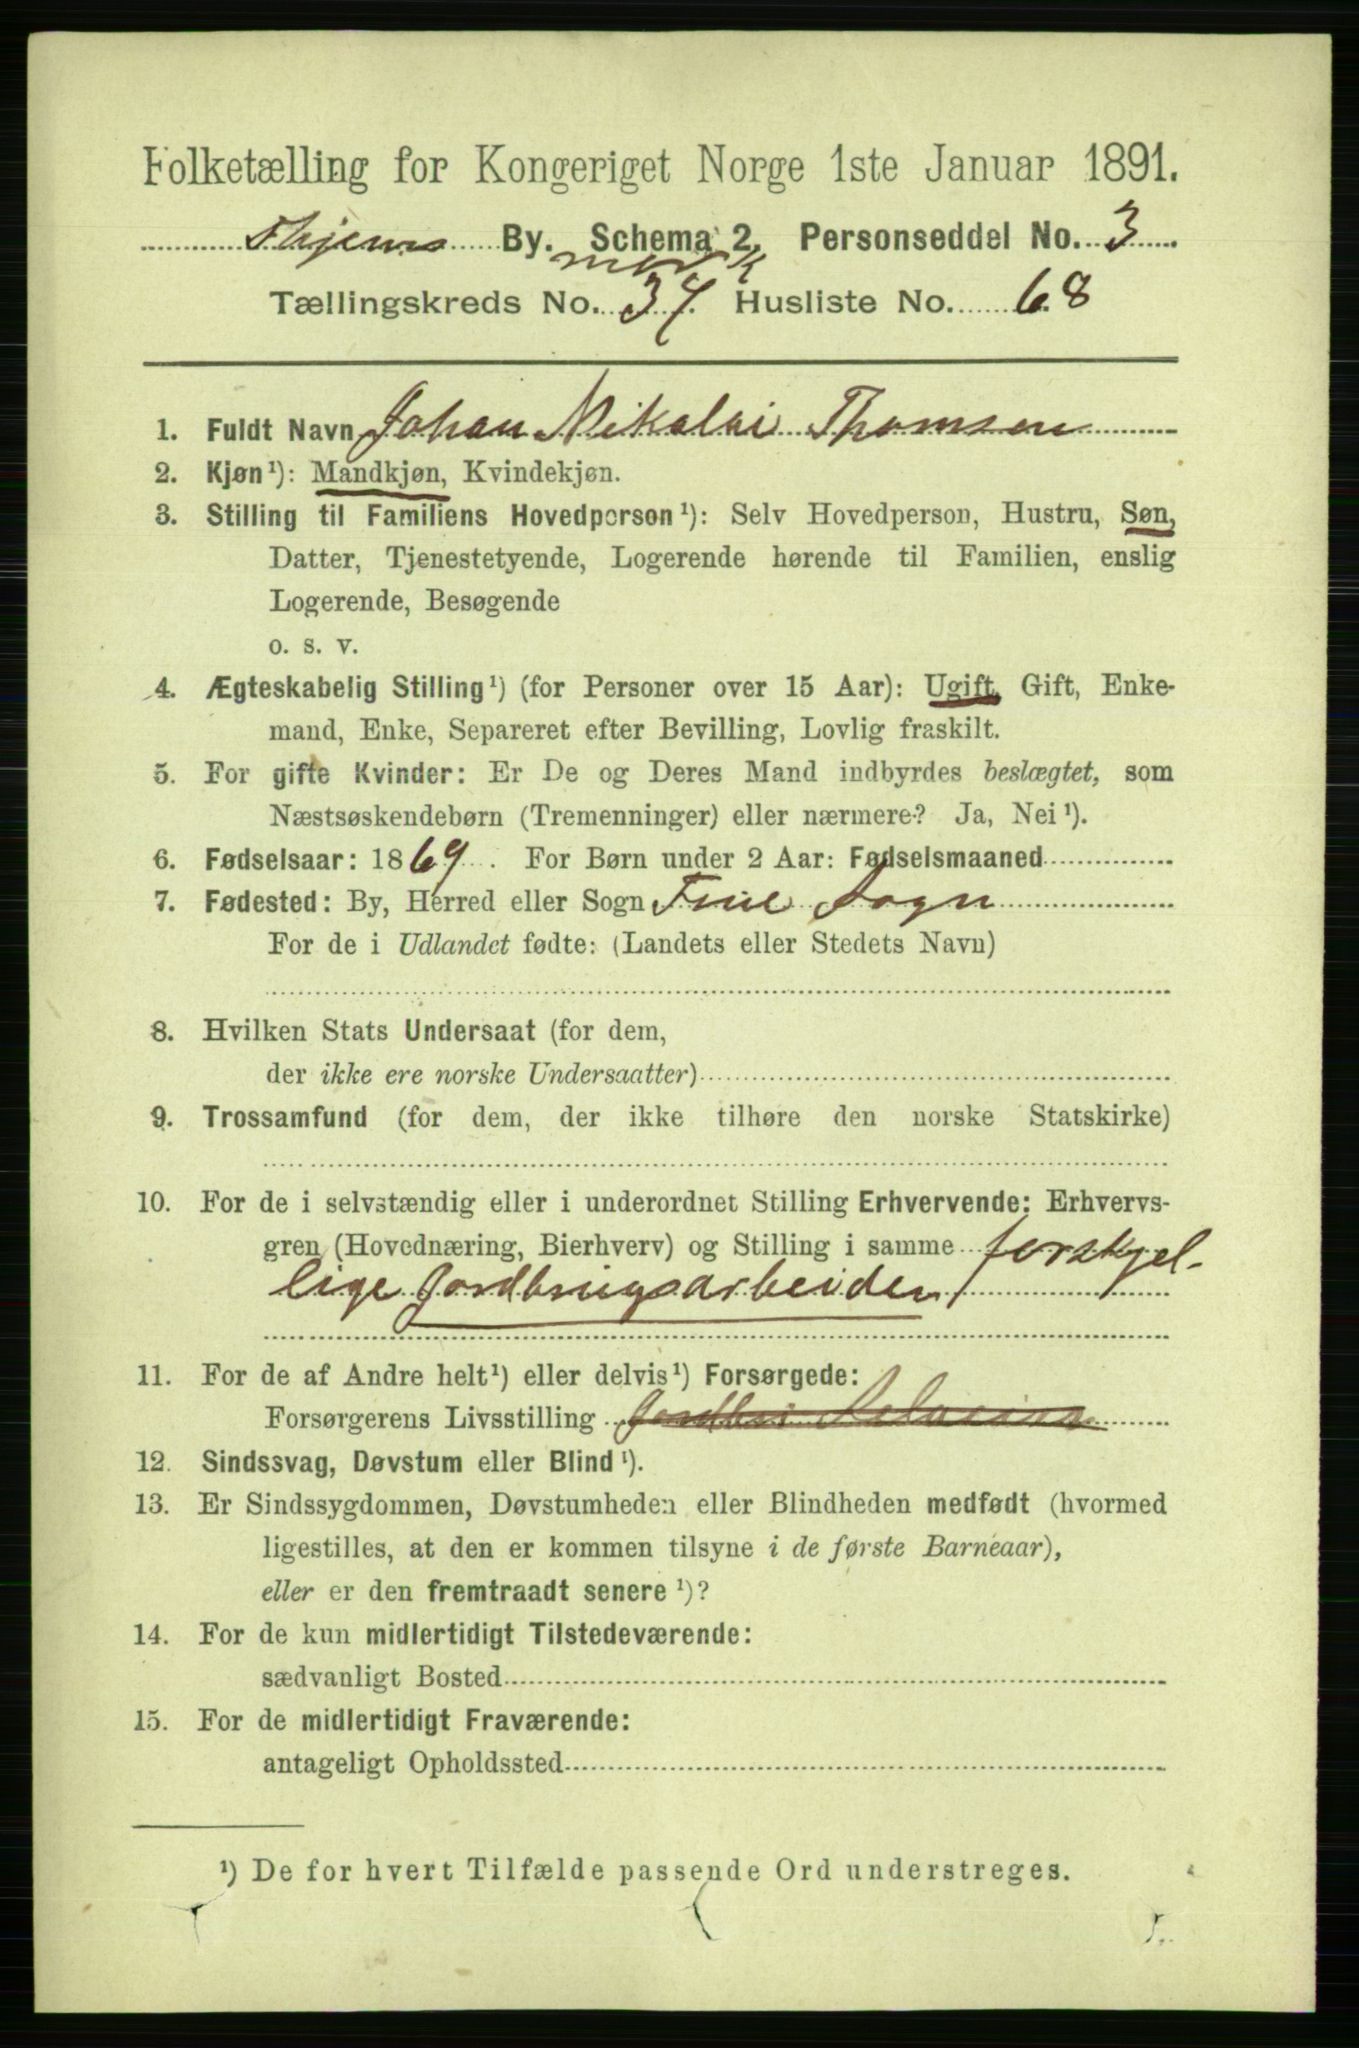 Folketælling for Kongeriget Norge 1ste Januar 1891.
By. Schema 2. Personseddel No. 3
Tællingskreds No. 34 Husliste No. 68
1. Fuldt Navn Johan Nikolai Thomsen
2. Kjøn¹): Mandkjøn, Kvindekjøn.
3. Stilling til Familiens Hovedperson¹): Selv Hovedperson, Hustru, Søn,
Datter, Tjenestetyende, Logerende hørende til Familien, enslig
Logerende, Besøgende
o. s. v.
4. Ægteskabelig Stilling¹) (for Personer over 15 Aar): Ugift, Gift, Enke-
mand, Enke, Separeret efter Bevilling, Lovlig fraskilt.
5. For gifte Kvinder: Er De og Deres Mand indbyrdes beslægtet, som
Næstsøskendebørn (Tremenninger) eller nærmere? Ja, Nei¹).
6. Fødselsaar: 1869. For Børn under 2 Aar: Fødselsmaaned
7. Fødested: By, Herred eller Sogn Sogn
For de i Udlandet fødte: (Landets eller Stedets Navn)
8. Hvilken Stats Undersaat (for dem,
der ikke ere norske Undersaatter)
9. Trossamfund (for dem, der ikke tilhøre den norske Statskirke)
10. For de i selvstændig eller i underordnet Stilling Erhvervende: Erhvervs-
gren (Hovednæring, Bierhverv) og Stilling i samme forskjel-
lige Jordbrugsarbeider
11. For de af Andre helt¹) eller delvis¹) Forsørgede:
Forsørgerens Livsstilling
12. Sindssvag, Døvstum eller Blind¹).
13. Er Sindssygdommen, Døvstumheden eller Blindheden medfødt (hvormed
ligestilles, at den er kommen tilsyne i de første Barneaar),
eller er den fremtraadt senere¹)?
14. For de kun midlertidigt Tilstedeværende:
sædvanligt Bosted
15. For de midlertidigt Fraværende:
antageligt Opholdssted
¹) De for hvert Tilfælde passende Ord understreges.